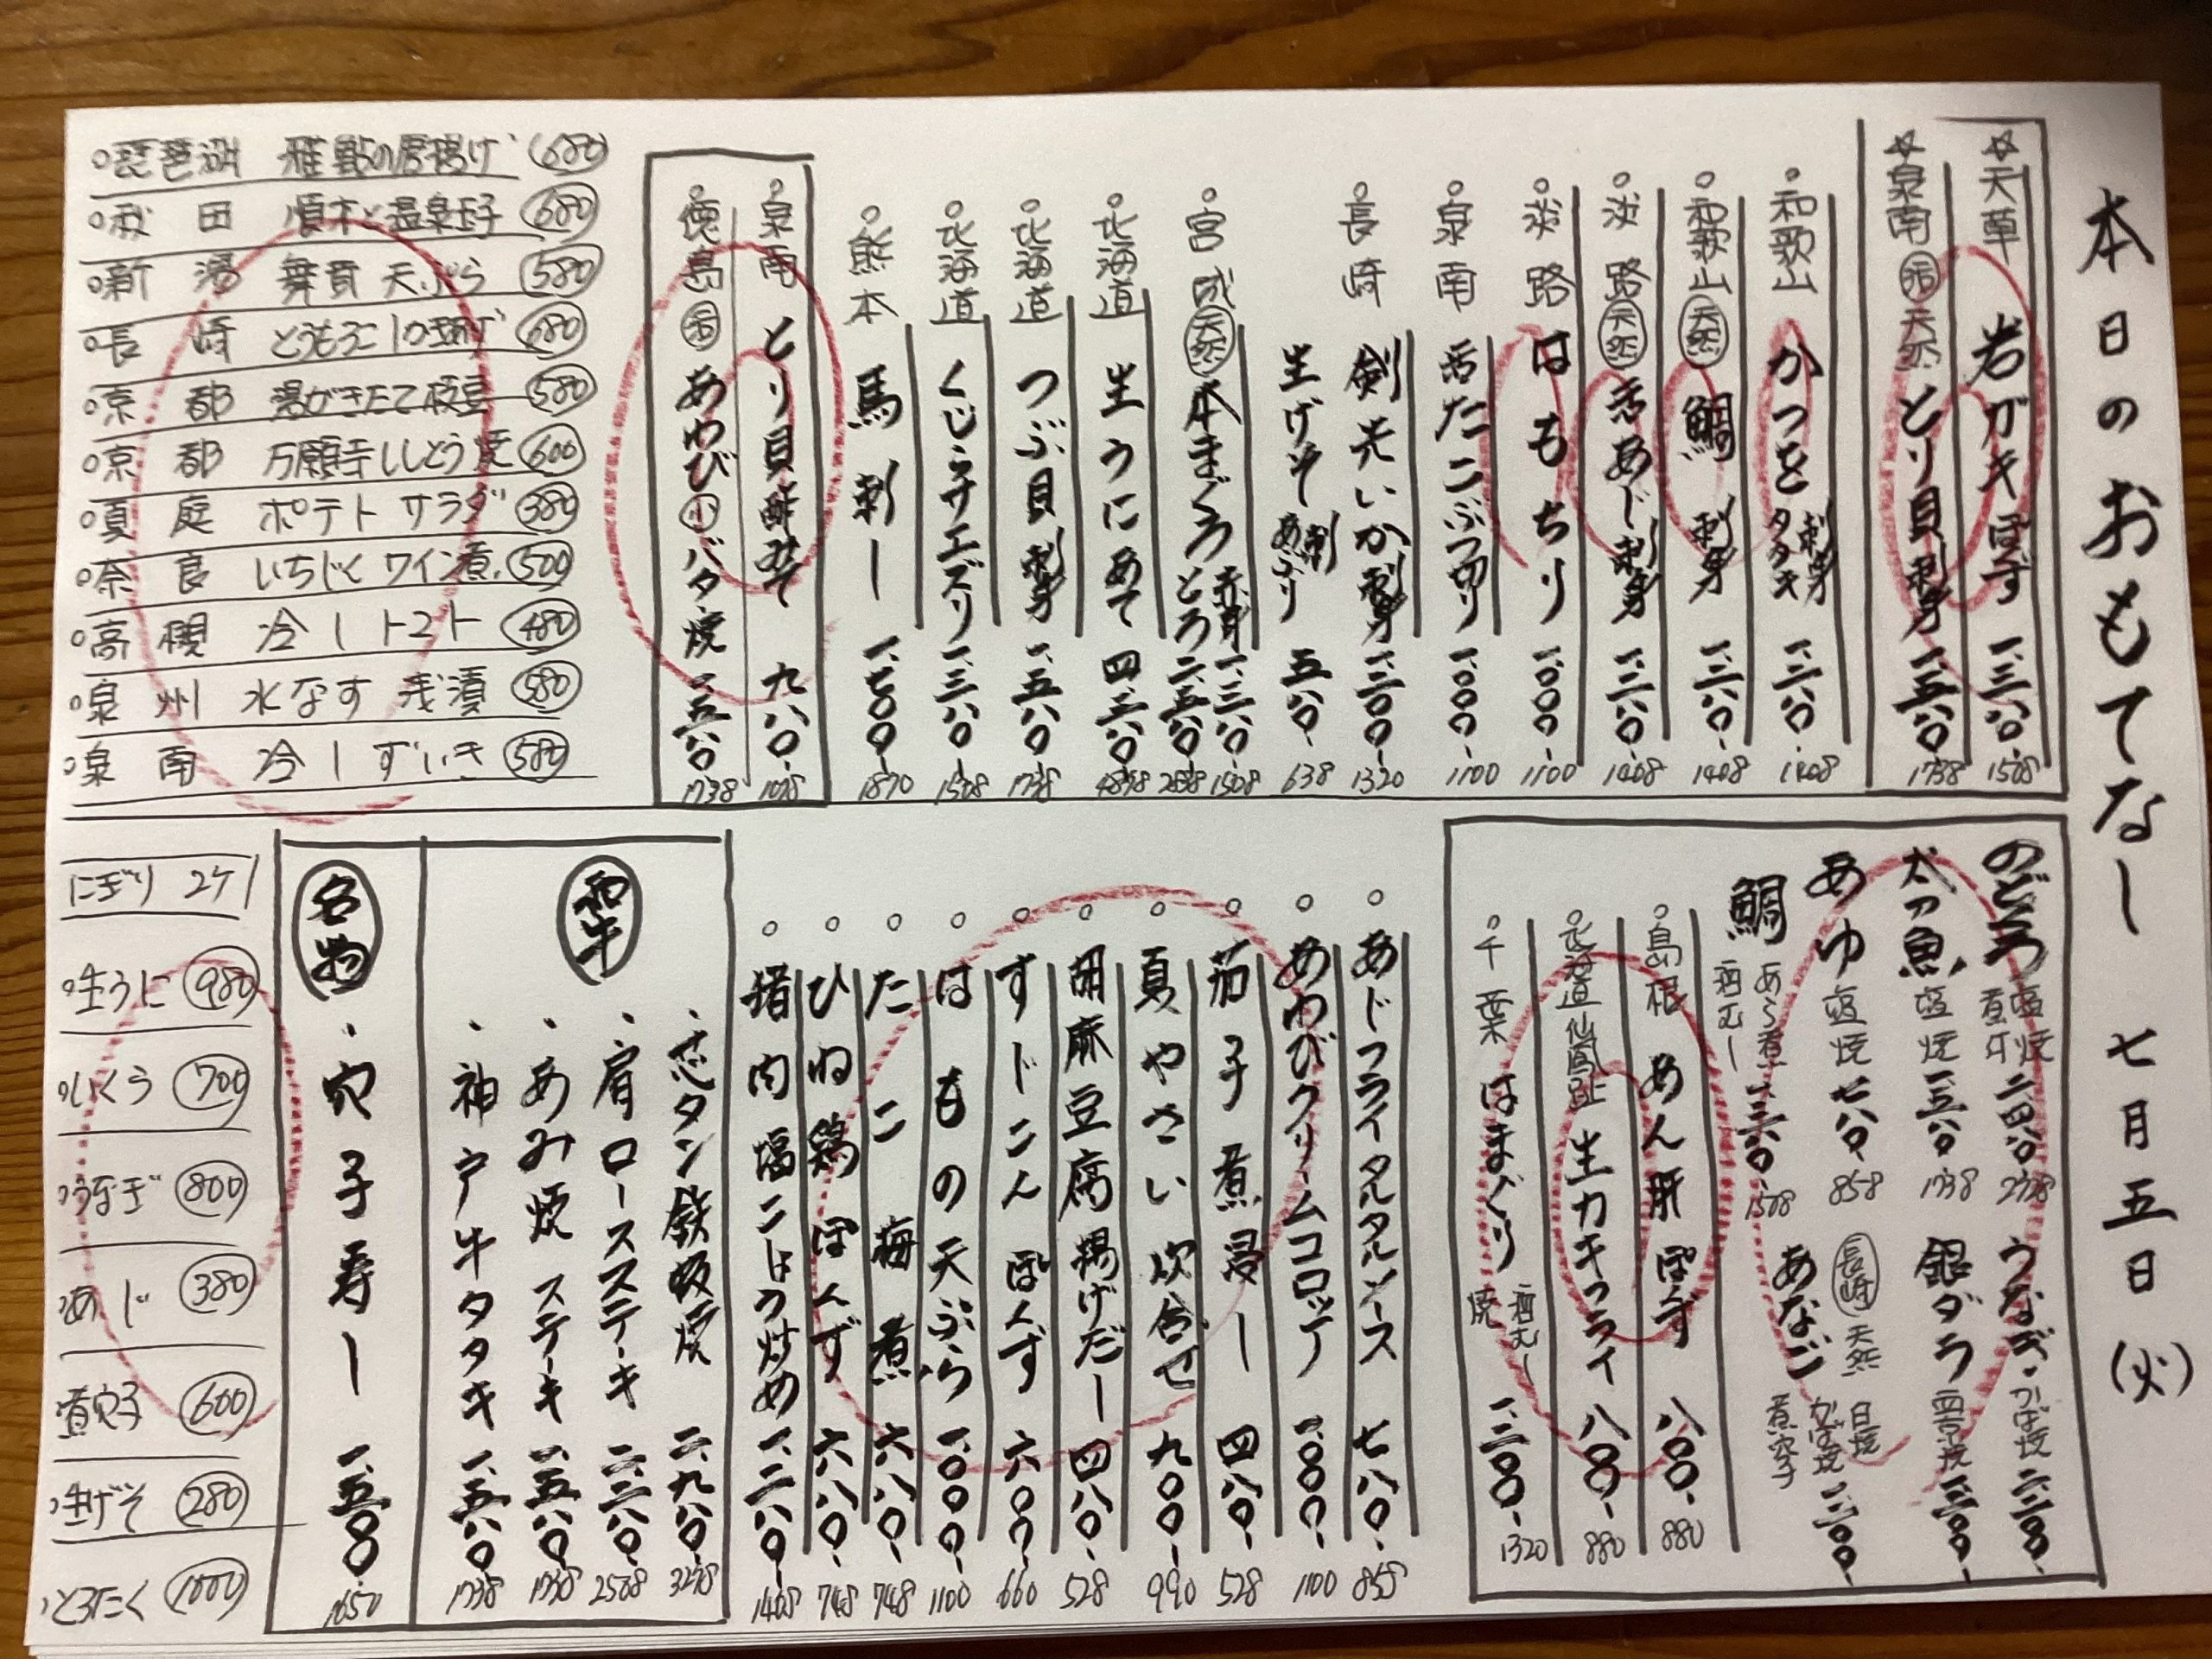 本日のおもてなし 七月五日(火)
☆天草 岩ガキぽず 一、三八〇- 1508
☆泉南 活 天然 とり貝 刺身 一、五八〇- 1738
○和歌山 かつを 刺身 タタキ 一、二八〇- 1408
○和歌山 天然 鯛 刺身 一、二八〇- 1408
○淡路 天然 活あじ 刺身 一、二八〇- 1408
○淡路 はもちり 一、〇〇〇- 1100
○泉南 活たこぶつ切り 一、〇〇〇- 1100
○長崎 剣先いか 刺身 一、二〇〇- 1320
生げそ 刺 あぶり 五八〇- 638
○宮城 天然 本まぐろ 赤身 一、三八〇- 1508
とろ 二、五八〇- 2838
○北海道 生うにあて 四、三八〇-
○北海道 つぶ貝 刺身 一、五八〇- 1738
○北海道 くじらサエズリ 一、三八〇- 1508
○熊本 馬刺し 一、七〇〇- 1870
○泉南 とり貝酢みそ 九八〇- 1078
○徳島 活 あわび 小 バタ焼 一、五八〇- 1738
○琵琶湖 稚鮎の唐揚げ 680
○秋田 順才と温泉玉子 680
○新潟 舞茸天ぷら 580
○長崎 とうもろこし 680
○京都 湯がきたて枝豆 580
○京都 万願寺ししとう焼 600
○真庭 ポテトサラダ 380
○奈良 いちじくワイン煮 500
○高槻 冷しトマト 480
○泉州 水なす浅漬 580
○泉南 冷しずいき 580
のどぐろ 塩焼 煮付 二、四八〇- 2728
太刀魚 塩焼 一、五八〇- 1738
あゆ 塩焼 七八〇- 858
鯛 あら煮 酒むし 一、三八〇- 1508
うなぎ かば焼
銀ダラ 西京焼
長崎 天然 あなご 白焼 かば焼 煮穴子
○島根 あん肝ぽず 八〇〇- 880
○北海道仙鳳趾 生カキフライ 八〇〇- 880
○千葉 はまぐり 酒むし 焼 一、二〇〇- 1320
○あじフライタルタルソース 七八〇- 858
○あわびクリームコロッケ 一、〇〇〇- 1100
○茄子煮浸し 四八〇- 528
○夏やさい炊合せ 九〇〇- 990
○胡麻豆腐揚げだし 四八〇- 528
○すじこんぽんず 六〇〇- 660
○はもの天ぷら 一、〇〇〇- 1100
○たこ梅煮 六八〇- 748
○ひね鶏ぽんず 六八〇- 748
○猪肉塩こしょう炒め 一、二八〇- 1408
和牛
、芯タン鉄板焼 二、九八〇- 3278
、肩ロースステーキ 二、二八〇- 2508
、あみ焼ステーキ 一、五八〇- 1738
、神戸牛タタキ 一、五八〇- 1738
名物
、穴子寿し 一、五〇〇- 1650
にぎり 2ケ
○生うに 980
○いくら 700
○うなぎ 800
○あじ 380
煮穴子 600
○生げそ 280
○とろたく 1000